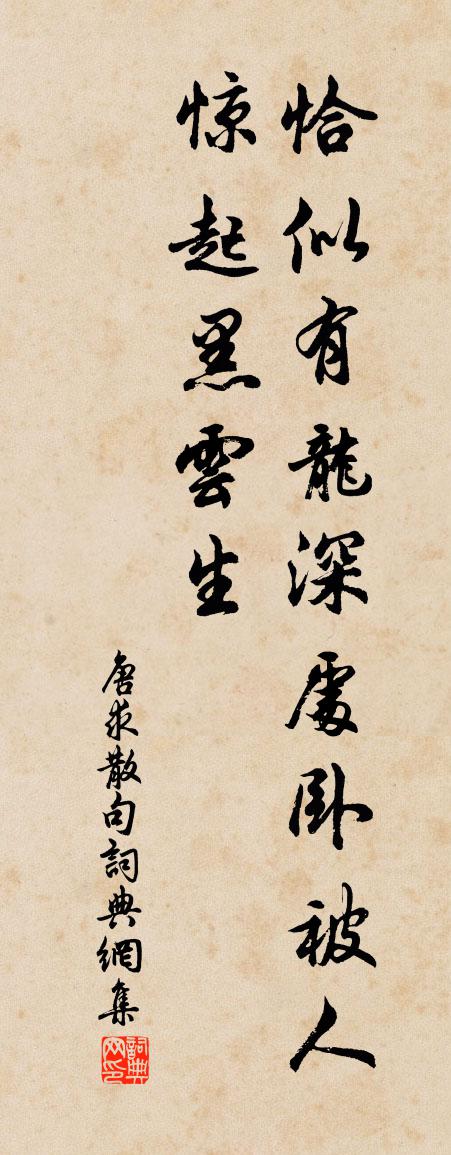 恰似有龍深處卧被人
惊起黑雲生
唐求散句詞典網集
詞典网印